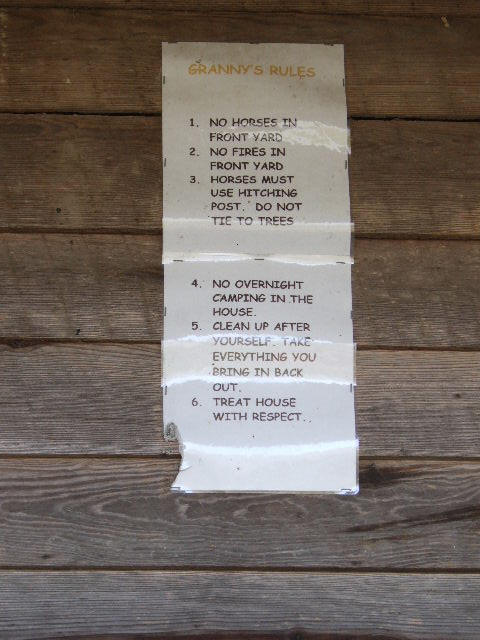 GRANNY'S RULES
1. NO HORSES IN
FRONT YARD
2. NO FIRES IN
FRONT YARD
3. HORSES MUST
USE HITCHING
POST. DO NOT
TIE TO TREES
4. NO OVERNIGHT
CAMPING IN THE
HOUSE.
5. CLEAN UP AFTER
YOURSELF. TAKE
EVERYTHING YOU
BRING IN BACK
OUT.
6. TREAT HOUSE
WITH RESPECT..